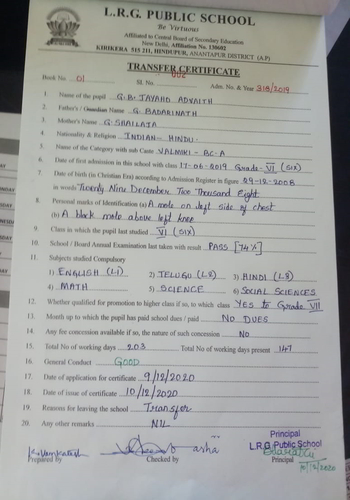 L.R.G. PUBLIC SCHOOL
Be Virtuous
Affiliated to Central Board of Secondary Education
New Delhi, Affiliation No. 130602
KIRIKERA 515 211, HINDUPUR, ANANTAPUR DISTRICT (A.P)
TRANSFER CERTIFICATE
Book No. 01 Sl. No. 002 Adm. No. & Year 318/2019
1 Name of the pupil G.B. JAYAND ADVAITH
2 Father's / Guardian Name G. BADARINATH
3 Mother's Name G. SHAILAJA
4. Nationality & Religion INDIAN - HINDU.
5. Name of the Category with sub Caste VALMIKI - BC-A
6. Date of first admission in this school with class 17-06-2019 Grade - VI (SIX)
7. Date of birth (in Christian Era) according to Admission Register in figure 29-12-2008
in words Twenty Nine December Two Thousand Eight
8. Personal marks of Identification (a) A mole on left side of chest
(b) A black mole above left knee
9. Class in which the pupil last studied VI (SIX)
10. School / Board Annual Examination last taken with result PASS [74%]
11. Subjects studied Compulsory
1) ENGLISH (L1) 2) TELUGU (L2) 3) HINDI (L3)
4) MATH 5) SCIENCE 6) SOCIAL SCIENCES
12. Whether qualified for promotion to higher class if so, to which class YES to Grade VII
13. Month up to which the pupil has paid school dues / paid NO DUES
14. Any fee concession available if so, the nature of concession NO
15. Total No of working days 203 Total No of working days present 147
16. General Conduct GOOD
17. Date of application for certificate 9/12/2020
18. Date of issue of certificate 10/12/2020
19. Reasons for leaving the school Transfer
20. Any other remarks NIL
Principal
L.R.G. Public School
Prepared by Checked by Principal